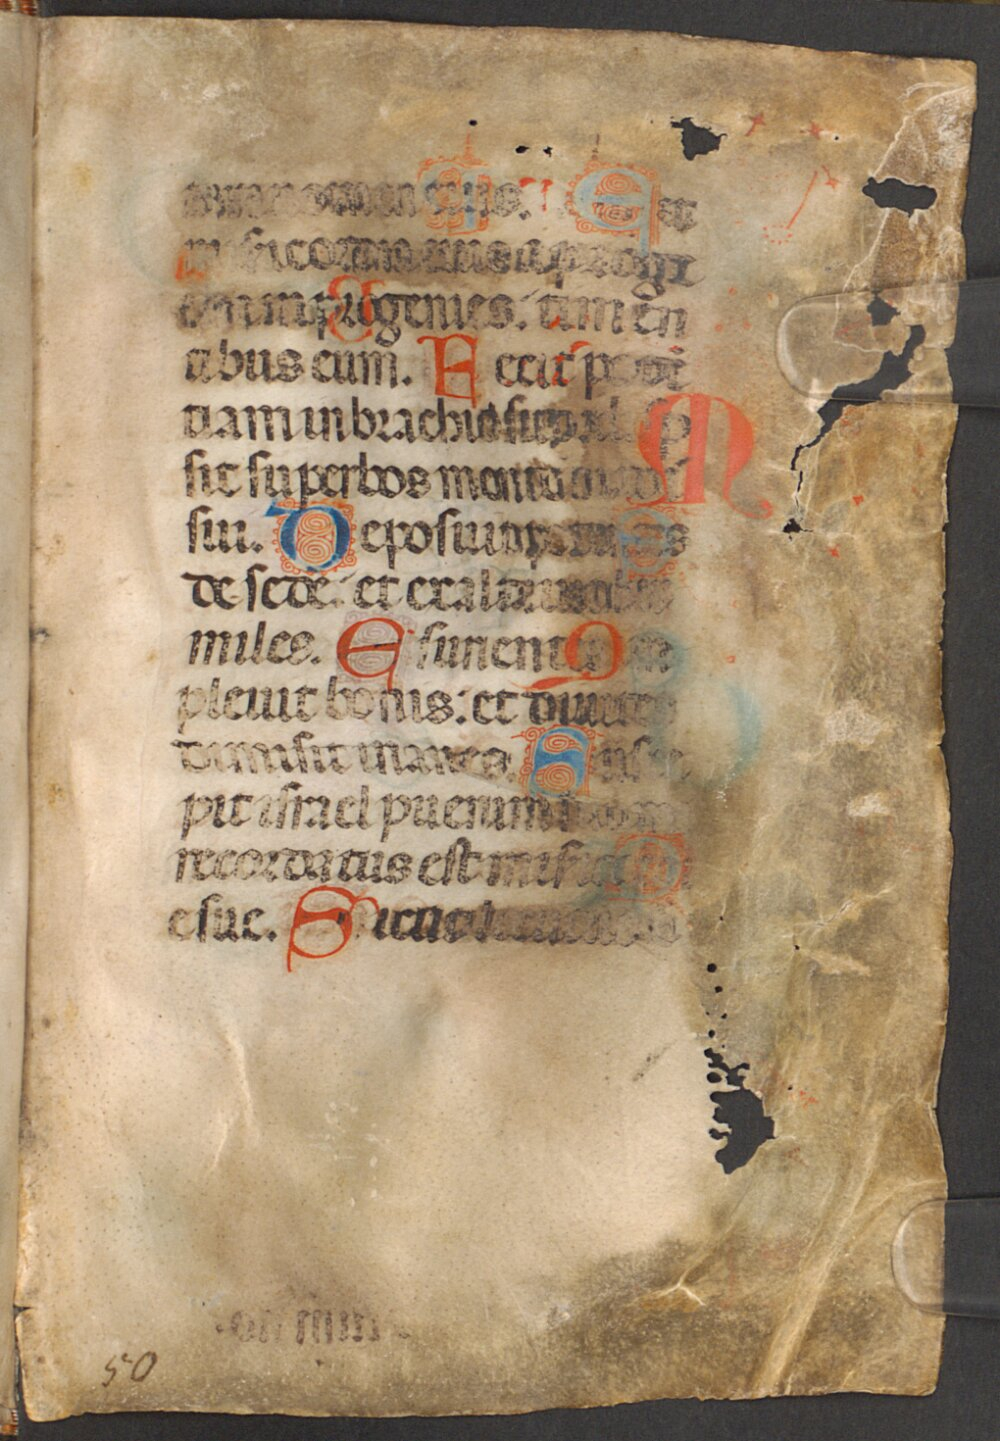 nomen eius. Et
misericordia eius a proge
nie in progenies: timen
tibus eum. Fecit poten
tiam in brachio suo
sit superbos mente cordis
sui. Deposuit potentes
de sede: et exaltavit hu
miles. Esurientes im
plevit bonis: et divites
dimisit inanes. Susce
pit israel puerum suum
recordatus est misericordi
e sue. Sicut
50